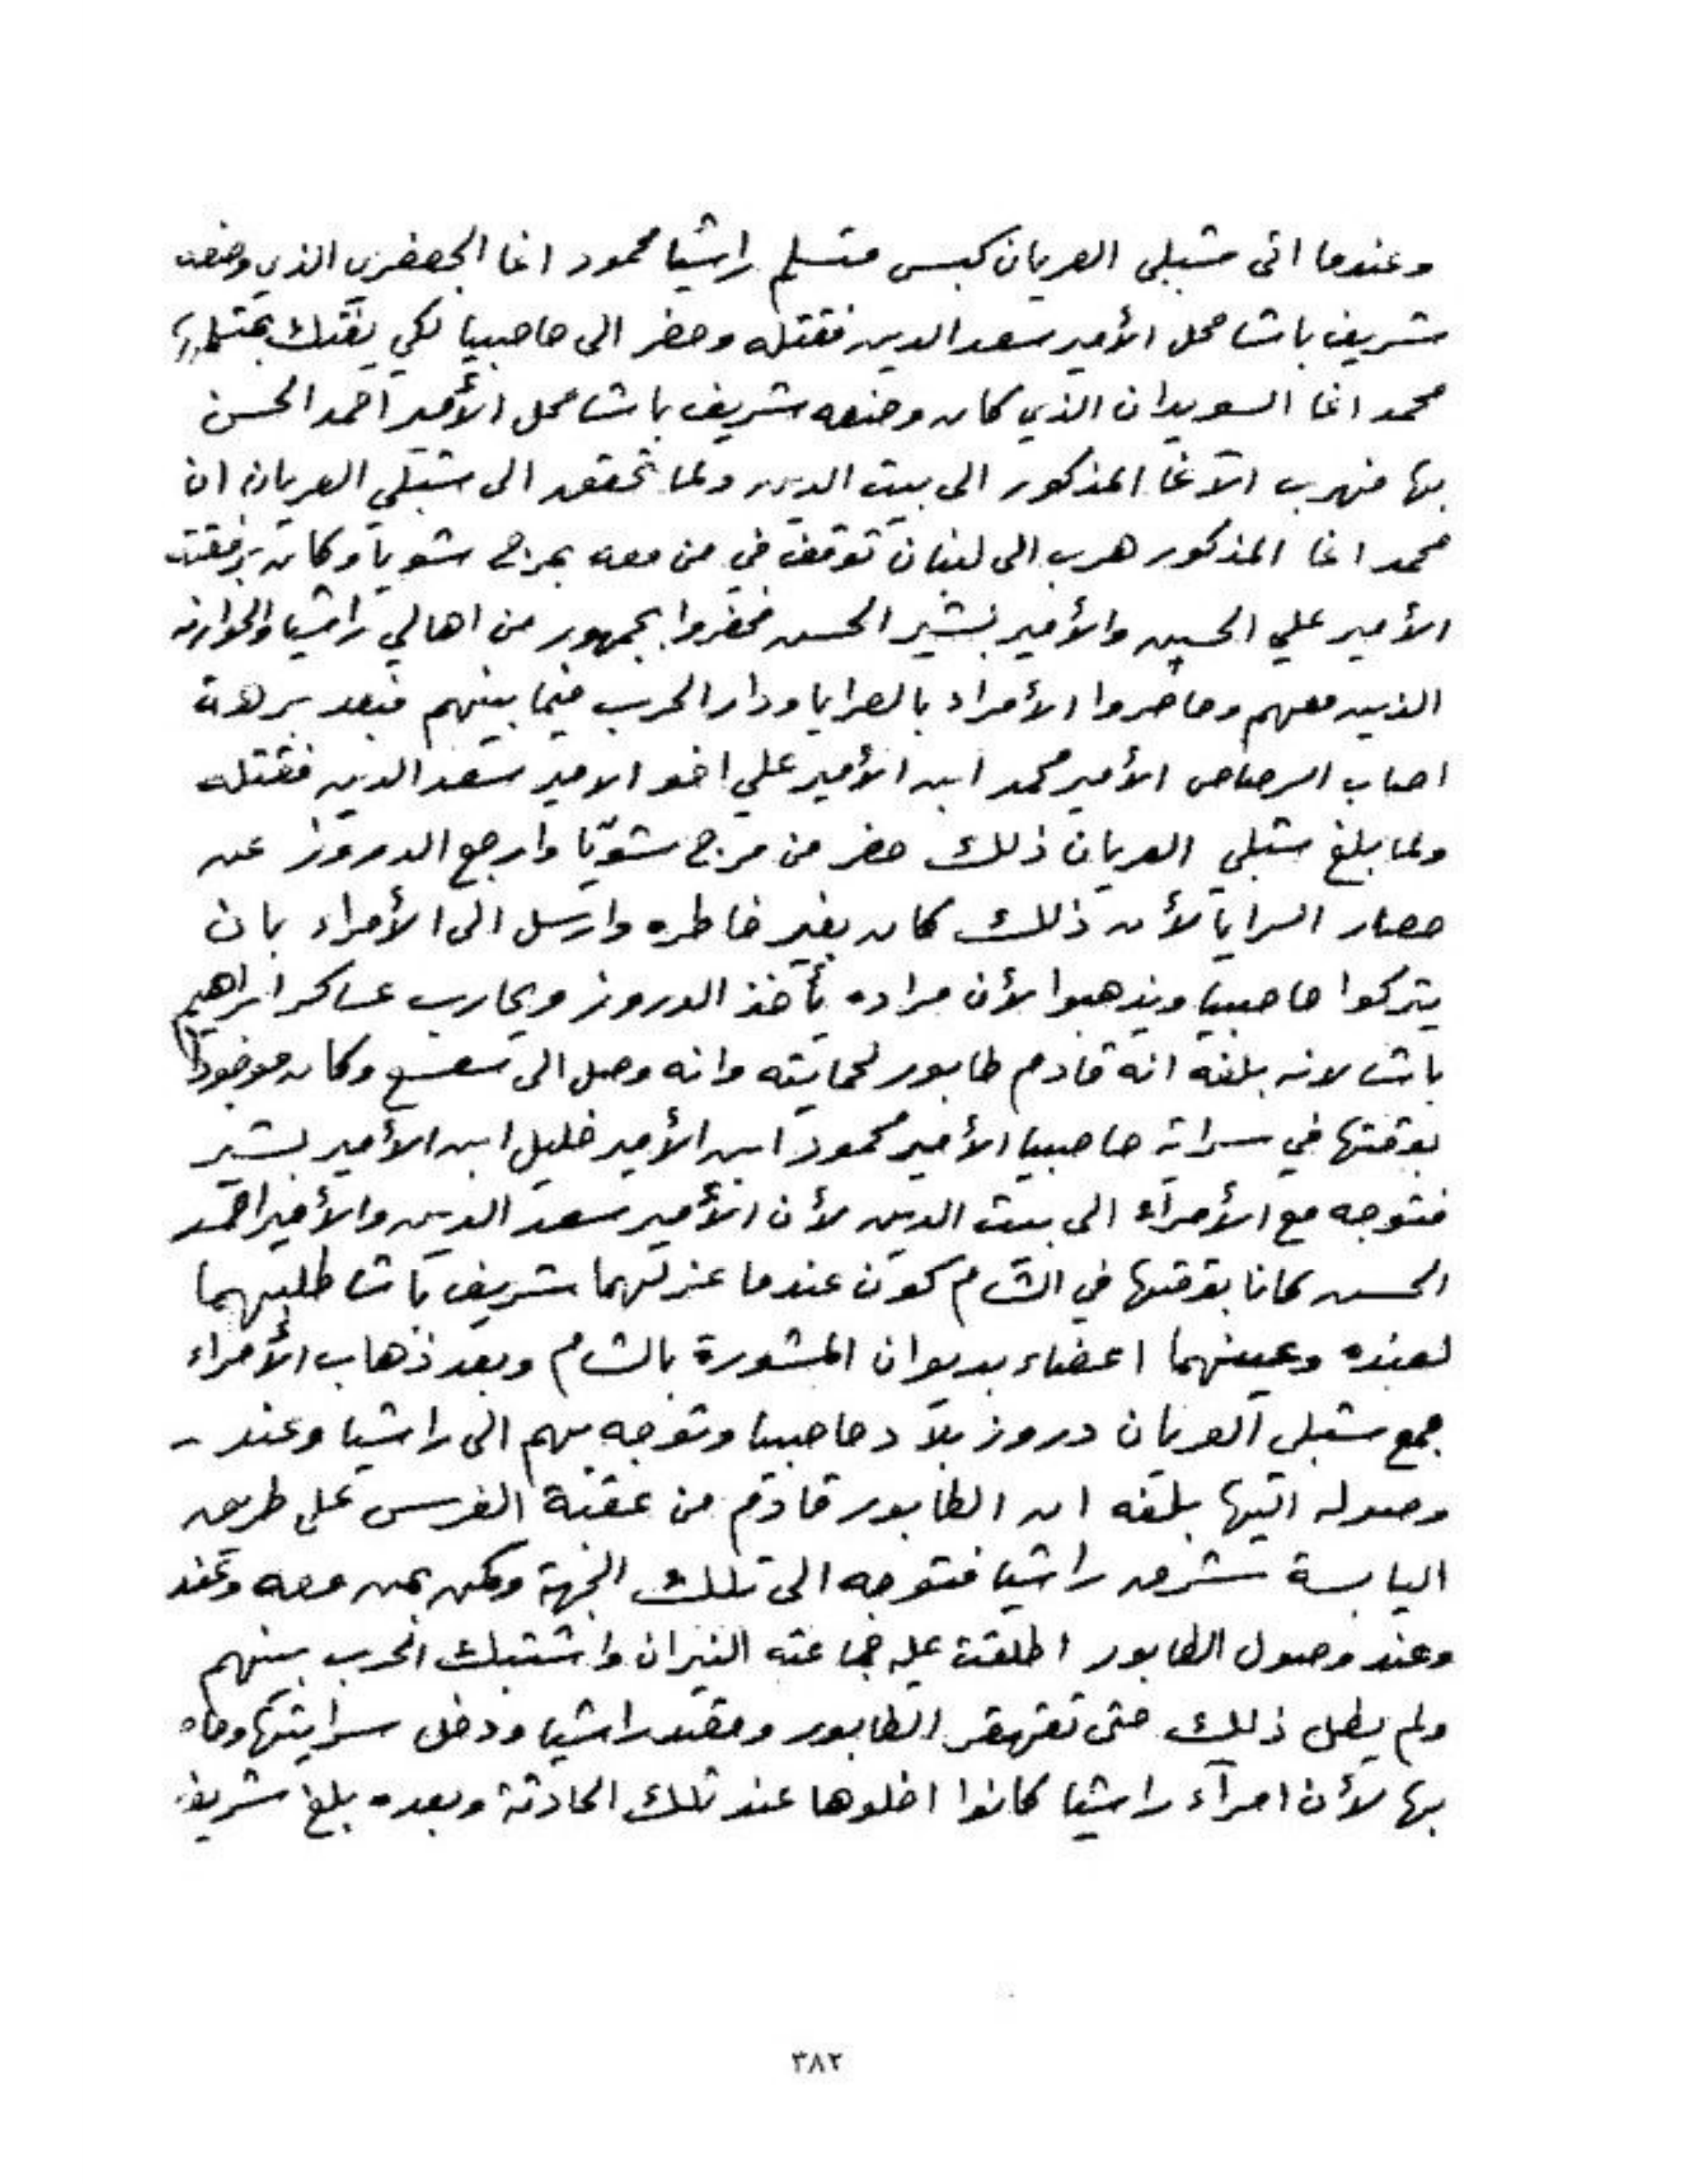 وعندما اتى شبلي العريان كبس متسلم راشيا محمود اغا الجعفري الذي وضعه
شريف باشا محل الأمير سعد الدين فقتله وحضر الى حاصبيا لكي يفتك بمتسلمها
محمد اغا السويدان الذي كان وضعه شريف باشا محل الأمير احمد الحسن
بها فهرب الآغا المذكور الى بيت الدين ولما تحقق الى شبلي العريان ان
محمد اغا المذكور هرب الى لبنان توقف في من معه بمرج شويا وكان برفقته
الأمير علي الحسين والأمير بشير الحسن فحضروا بجمهور من اهالي راشيا والخوارنه
الذين معهم وحاصروا الأمراء بالصرايا ودار الحرب فيما بينهم فبعد برهة
اصاب الرصاص الأمير محمد ابن الأمير علي اخو الامير سعد الدين فقتله
ولما بلغ شبلي العريان ذلك حضر من مرج شويّا وارجع الدروز عن
حصار السرايا لأن ذلك كان بغير خاطره وارسل الى الأمراء بان
يتركوا حاصبيا ويذهبوا لأن مراده يأخذ الدروز ويحارب عساكر ابراهيم
باشا لانه بلغه انه قادم طابور لحمايته وانه وصل الى سعسع وكان موجودا
بوقتها في سراية حاصبيا الأمير محمود ابن الأمير خليل ابن الأمير بشير
فتوجه مع الأمراء الى بيت الدين لأن الأمير سعد الدين والأمير احمد
الحسن كانا بوقتها في الشام كون عندما عزلهما شريف باشا طلبهما
لعنده وعينهما اعضاء بديوان المشورة بالشام وبعد ذهاب الأمراء
جمع شبلي العريان دروز بلاد حاصبيا وتوجه بهم الى راشيا وعند
وصوله اليها بلغه ان الطابور قادم من عقبة الفرس على طريق
اليابسة شرق راشيا فتوجه الى تلك الجهة وكمن بمن معه وعند
وعند وصول الطابور اطلقت عليه جماعته النيران واشتبك الحرب بينهم
ولم يطل ذلك حتى تقهقر الطابور وقصد راشيا ودخل سرايتها وحاه
بها لأن امرآء راشيا كانوا اخلوها عند تلك الحادثة وبعده بلغ شريف
٣٨٢